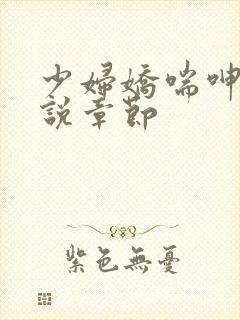 少婦嬌喘呻
說章節
紫色無憂